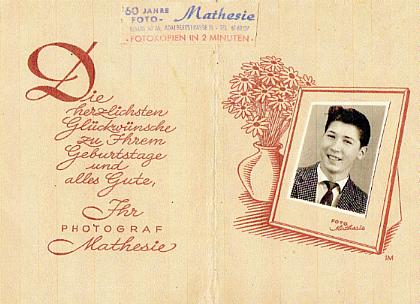 60 JAHRE
FOTO- Mathesie
BERLIN SO 36, ADALBERTSTRASSE 11 - TEL.
- FOTOKOPIEN IN 2 MINUTEN -
Die
herzlichsten
Glückwünsche
zu Ihrem
Geburtstage
und
alles Gute,
Ihr
PHOTOGRAF
Mathesie
FOTO
Mathesie
JM